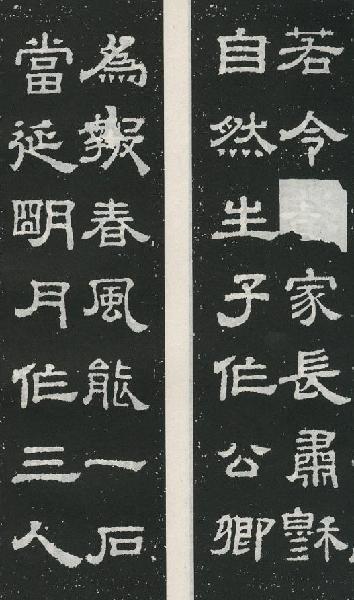 若令家長肅穆
自然生子作公卿
為報春風能一石
當延朙月作三人